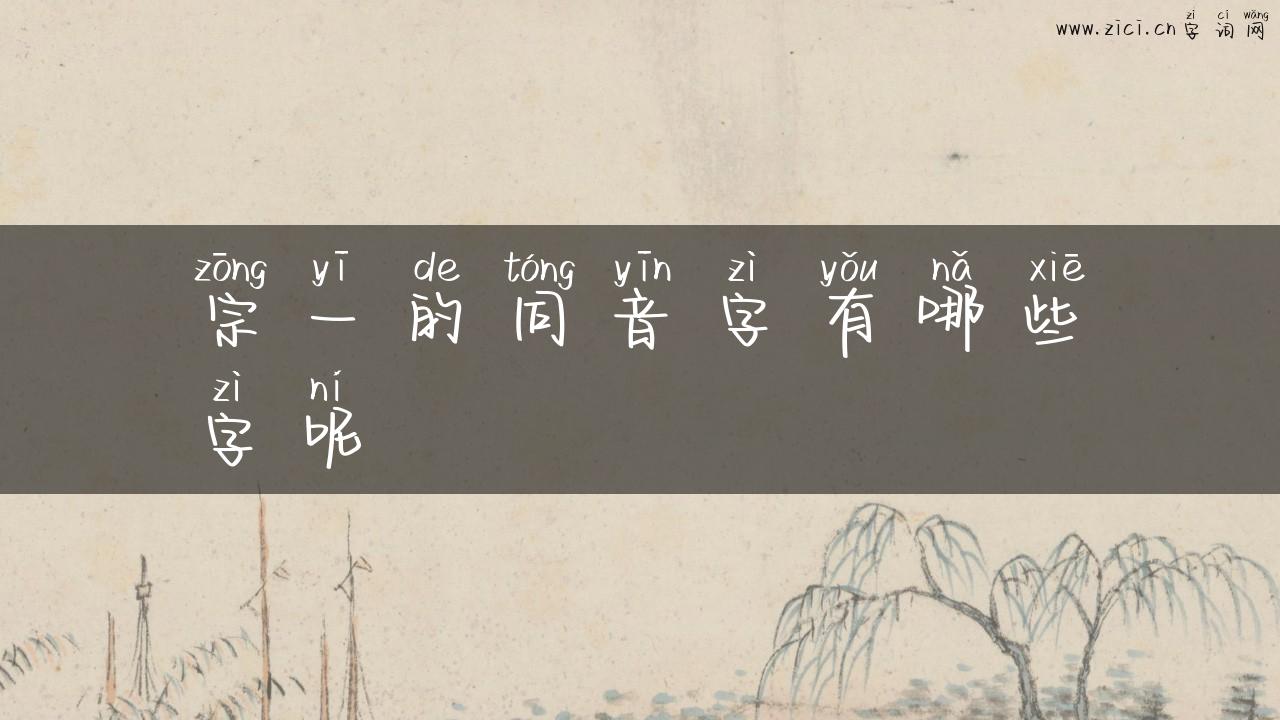 zì cí wǎng
www.zici.cn 字词网
zōng yī de tóng yīn zì yǒu nǎ xiē
宗一的同音字有哪些
zì ní
字呢